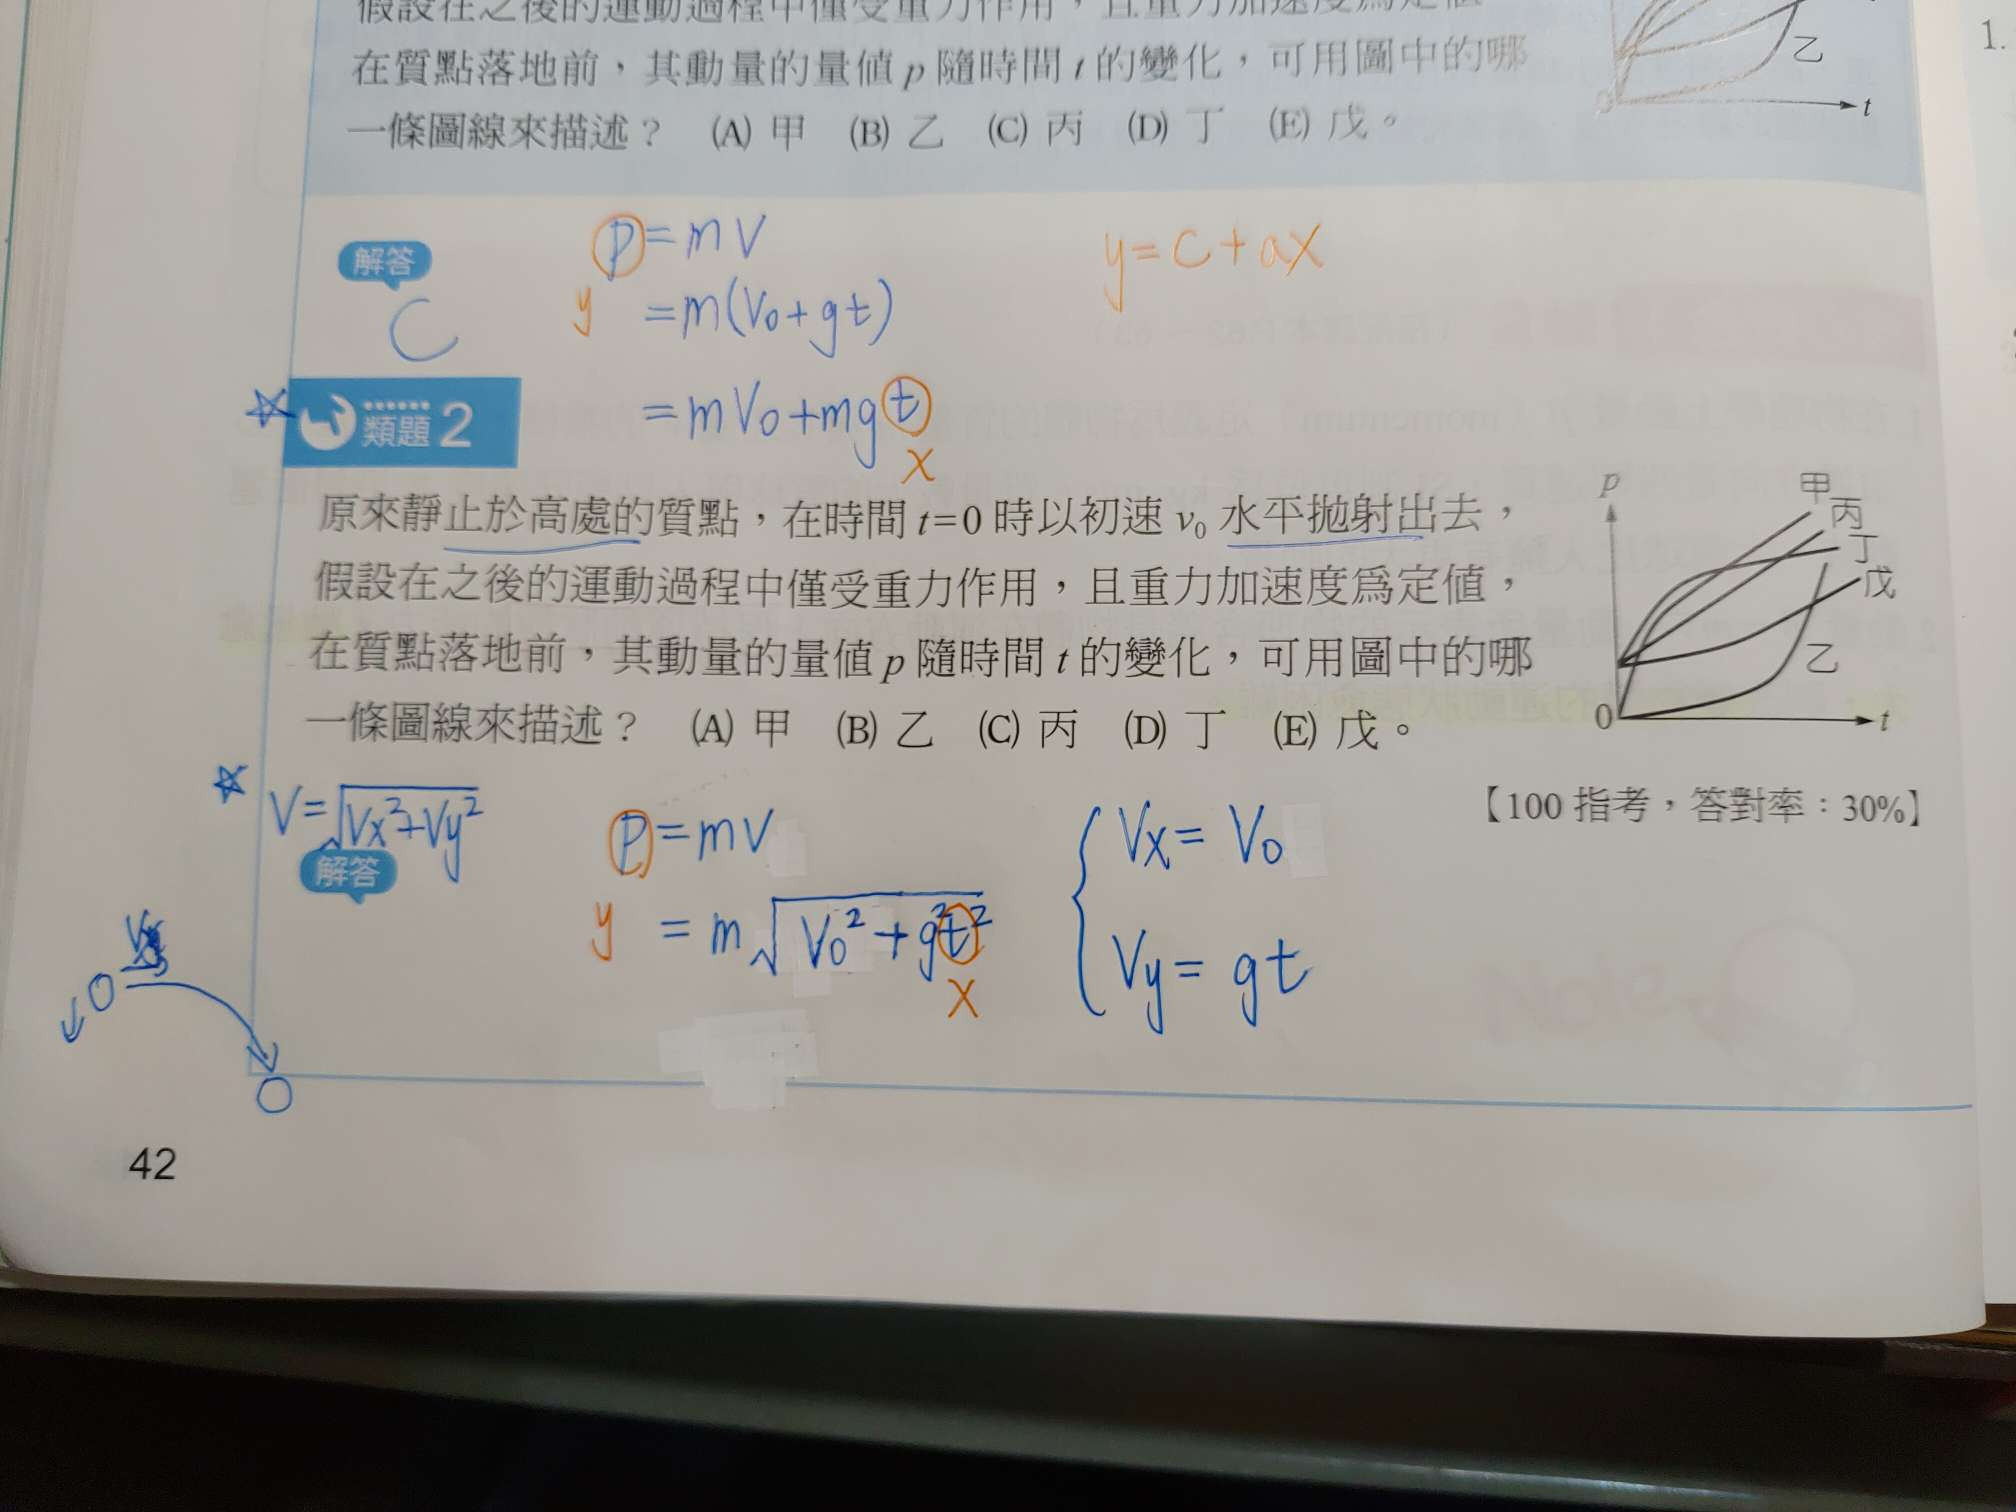 假設在之後的運動過程中僅受重力作用，且重力加速度爲定值
在質點落地前，其動量的量值 p 隨時間 t 的變化，可用圖中的哪
一條圖線來描述？ (A) 甲 (B) 乙 (C) 丙 (D) 丁 (E) 戊。
乙
0
t
1.
解答
C
p = mV
y
= m(V₀+gt)
= mV₀+mgt
x
y = c + ax
類題 2
原來靜止於高處的質點，在時間 t=0 時以初速 v₀ 水平拋射出去，
假設在之後的運動過程中僅受重力作用，且重力加速度爲定值，
在質點落地前，其動量的量值 p 隨時間 t 的變化，可用圖中的哪
一條圖線來描述？ (A) 甲 (B) 乙 (C) 丙 (D) 丁 (E) 戊。
p
甲
丙
丁
戊
乙
0
t
【100 指考，答對率：30%】
V=√(Vx²+Vy²)
解答
p = mV
y
= m√(V₀²+g²t²)
x
Vx = V₀
Vy = gt
42